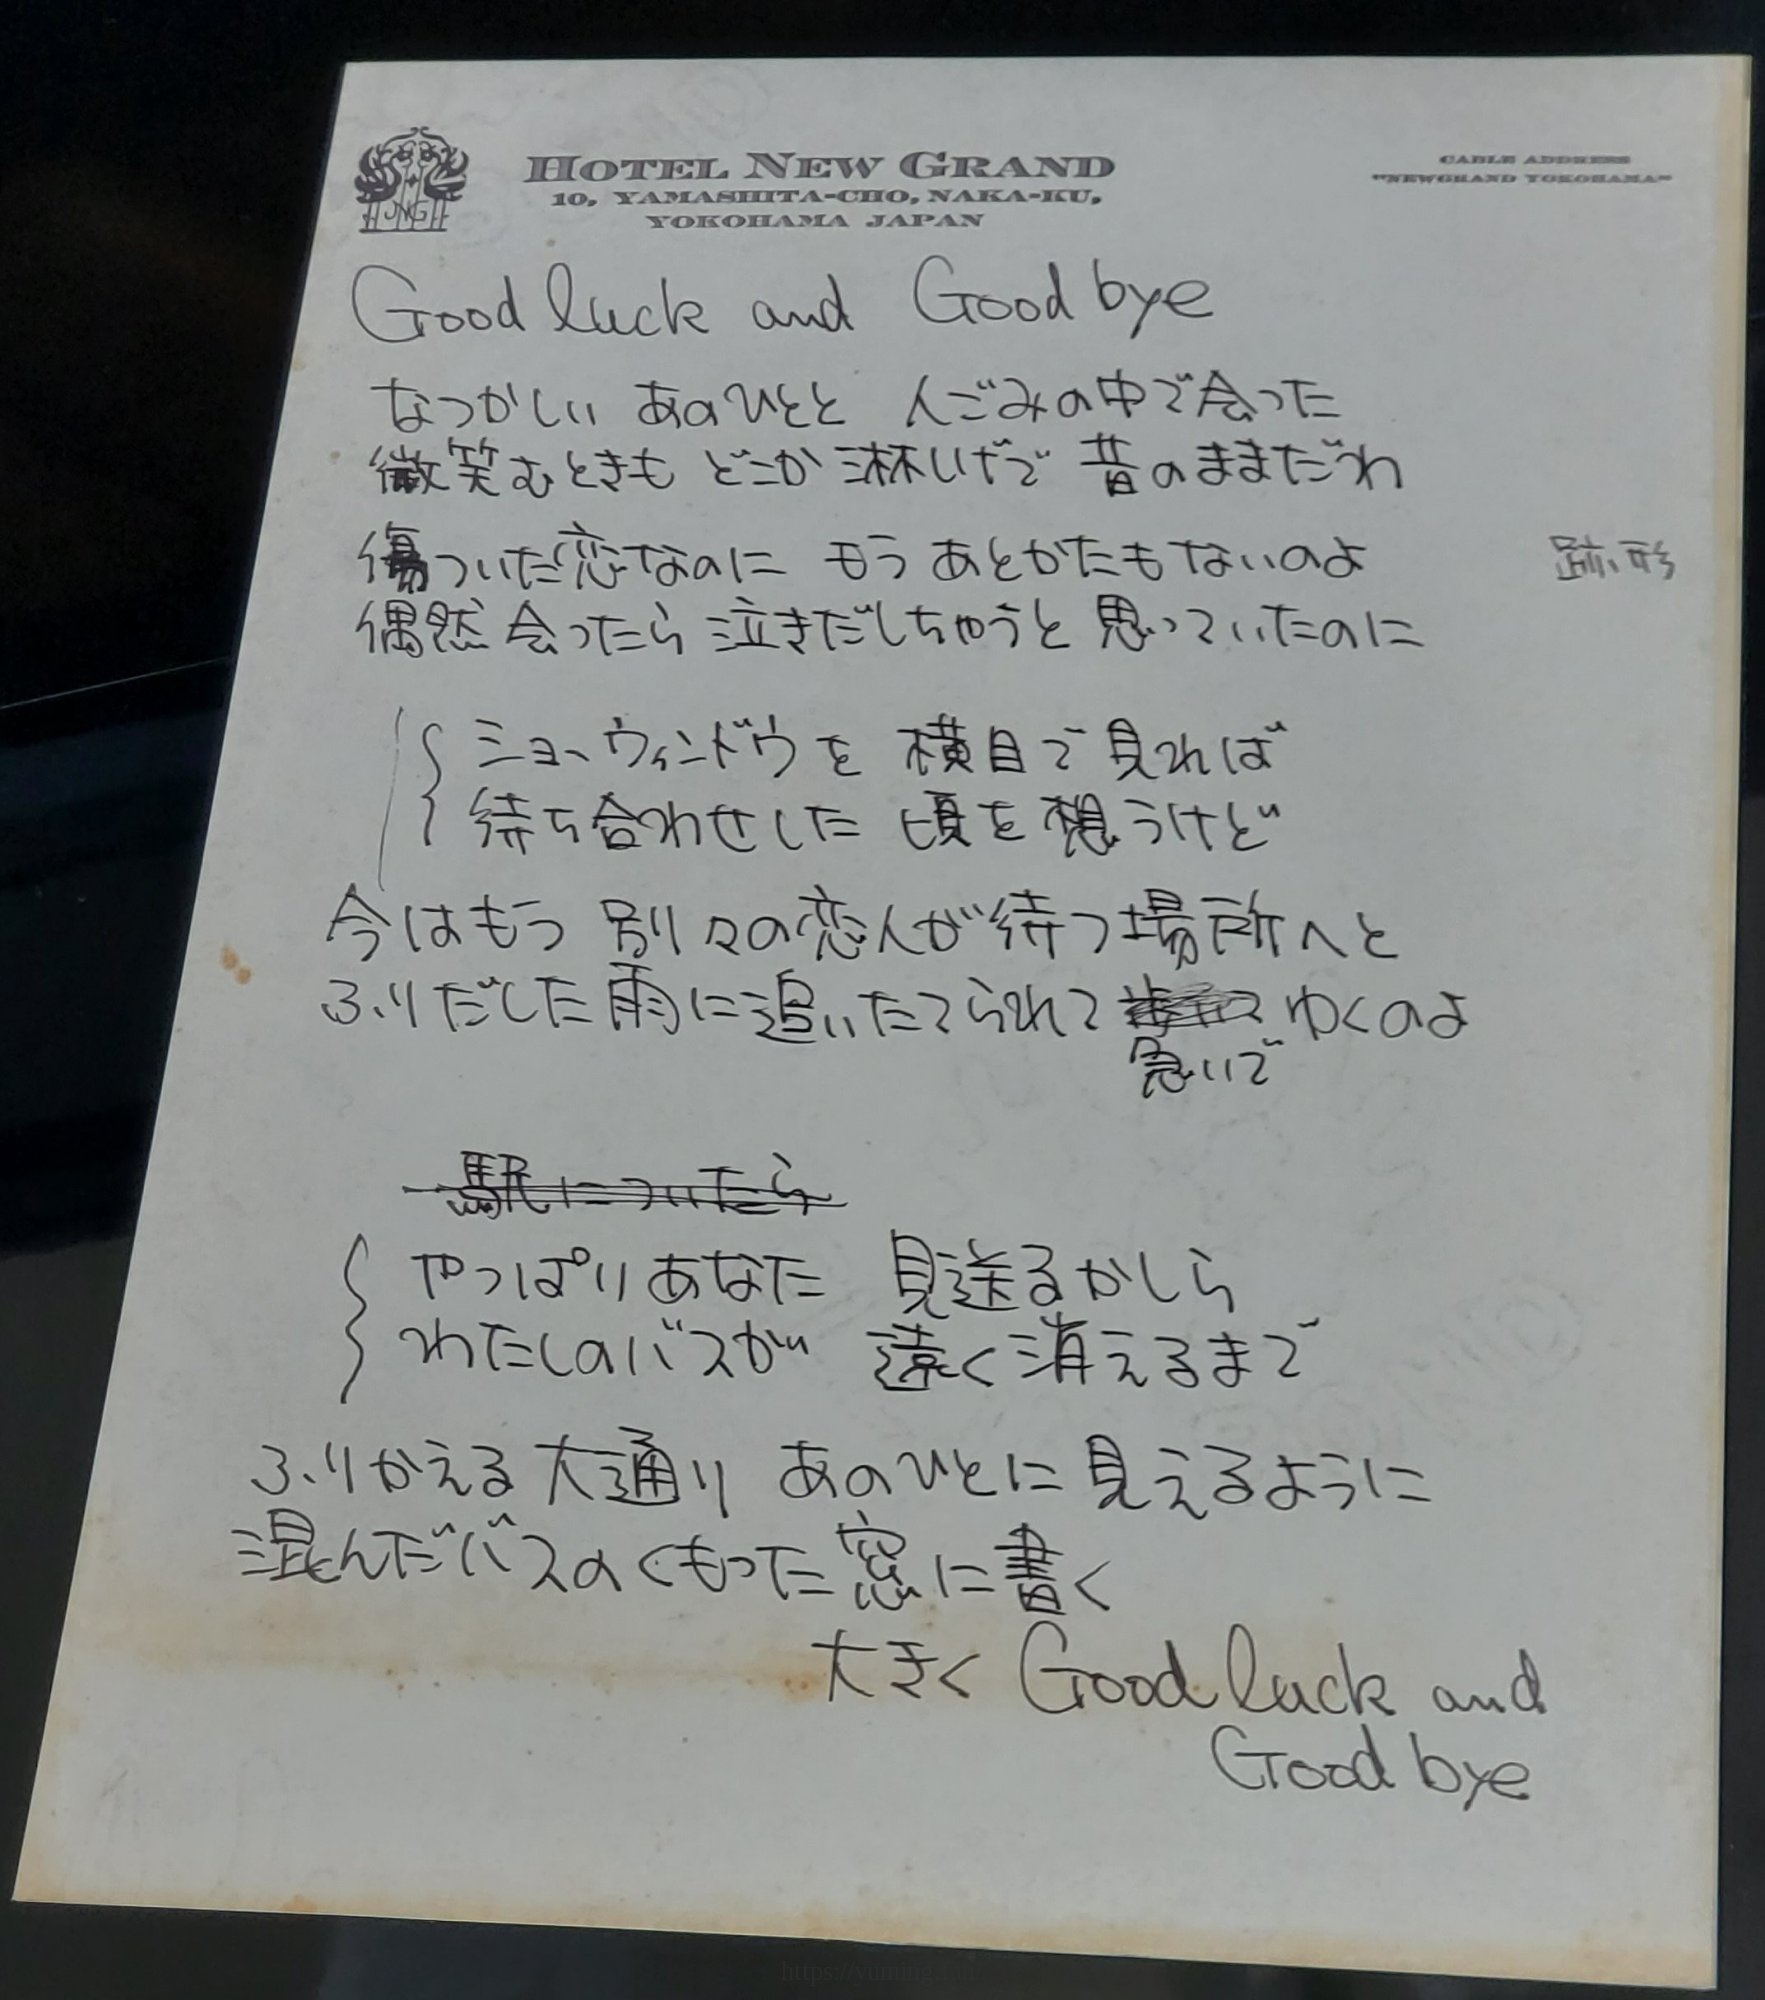 HOTEL NEW GRAND
10, YAMASHITA-CHO, NAKA-KU,
YOKOHAMA JAPAN
CABLE ADDRESS
"NEWGRAND YOKOHAMA"
JNGH
Good luck and Good bye
なつかしい あのひとと 人ごみの中で会った
微笑むときも どこか淋しげで 昔のままだわ
傷ついた恋なのに もう あとかたもないのよ
跡形
偶然 会ったら 泣きだしちゃうと 思っていたのに
ショーウィンドウを 横目で見れば
待ち合わせした 頃を想うけど
今はもう 別々の恋人が待つ場所へと
ふりだした雨に追いたてられて ゆくのよ
急いで
駅についたら
やっぱりあなた 見送るかしら
わたしのバスが 遠く消えるまで
ふりかえる大通り あのひとに見えるように
混んだバスのくもった窓に書く
大きく Good luck and
Good bye